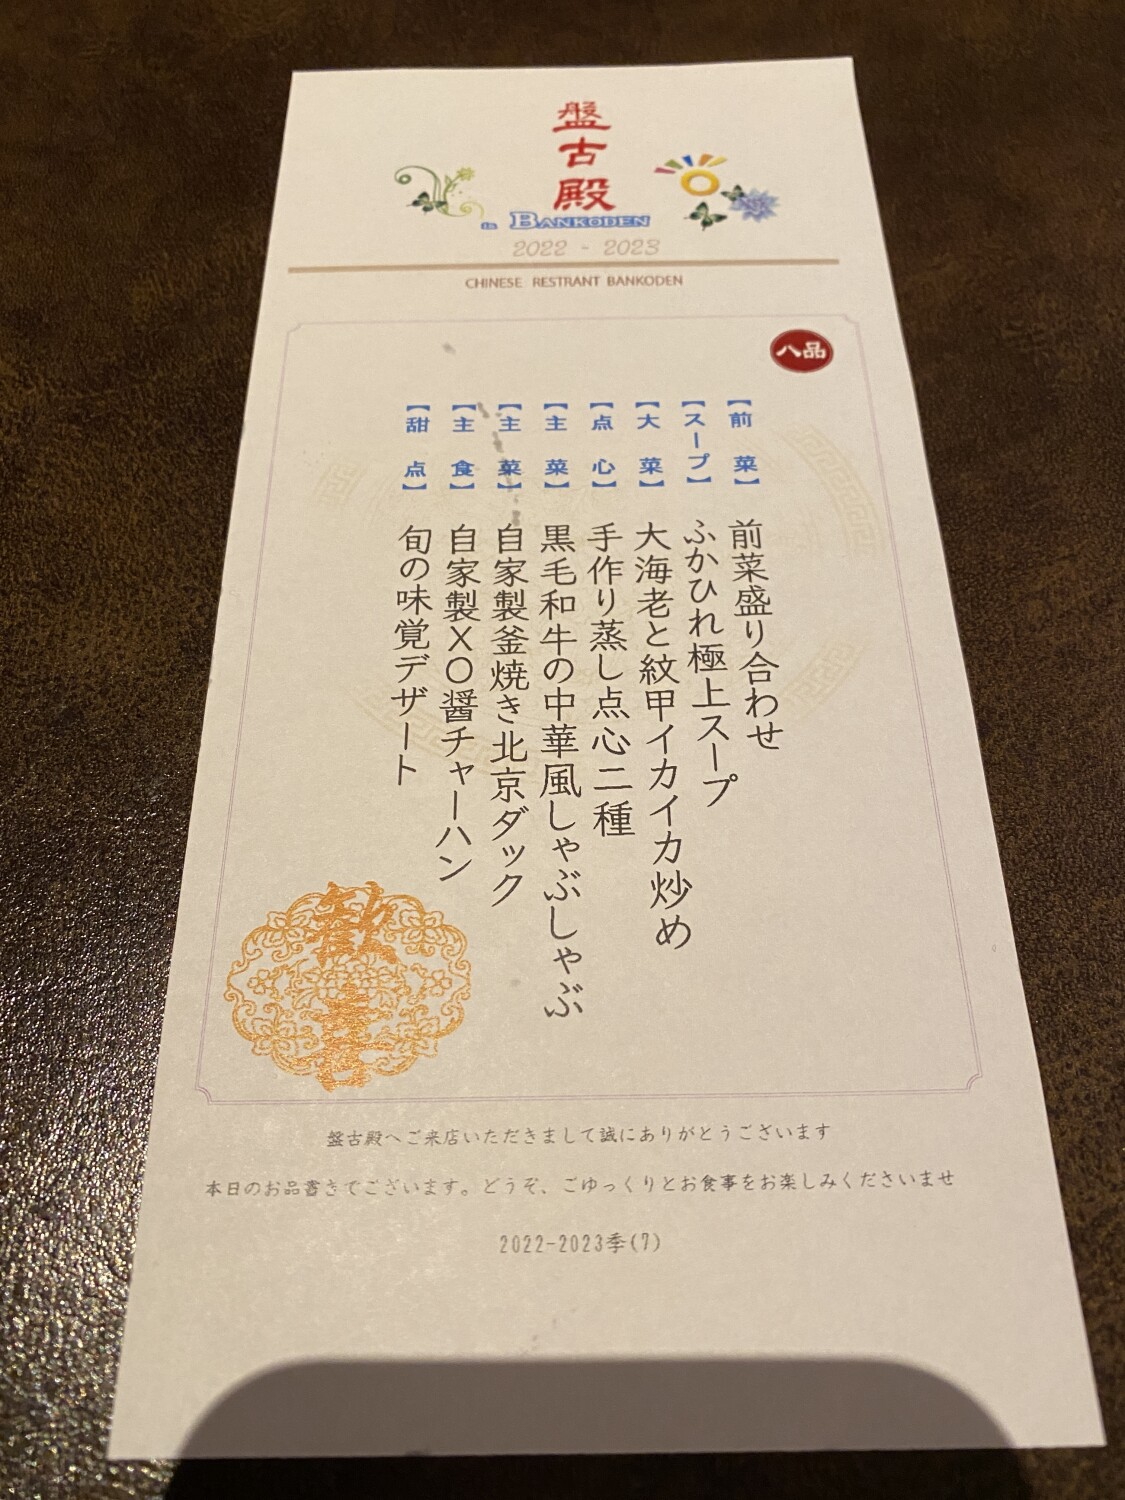 盤古殿
in BANKODEN
2022 - 2023
CHINESE RESTRANT BANKODEN
八品
【前菜】前菜盛り合わせ
【スープ】ふかひれ極上スープ
【大菜】大海老と紋甲イカイカ炒め
【点心】手作り蒸し点心二種
【主菜】黒毛和牛の中華風しゃぶしゃぶ
【主菜】自家製釜焼き北京ダック
【主食】自家製XO醤チャーハン
【甜点】旬の味覚デザート
歓喜
盤古殿へご来店いただきまして誠にありがとうございます
本日のお品書きでございます。どうぞ、ごゆっくりとお食事をお楽しみくださいませ
2022-2023季(7)